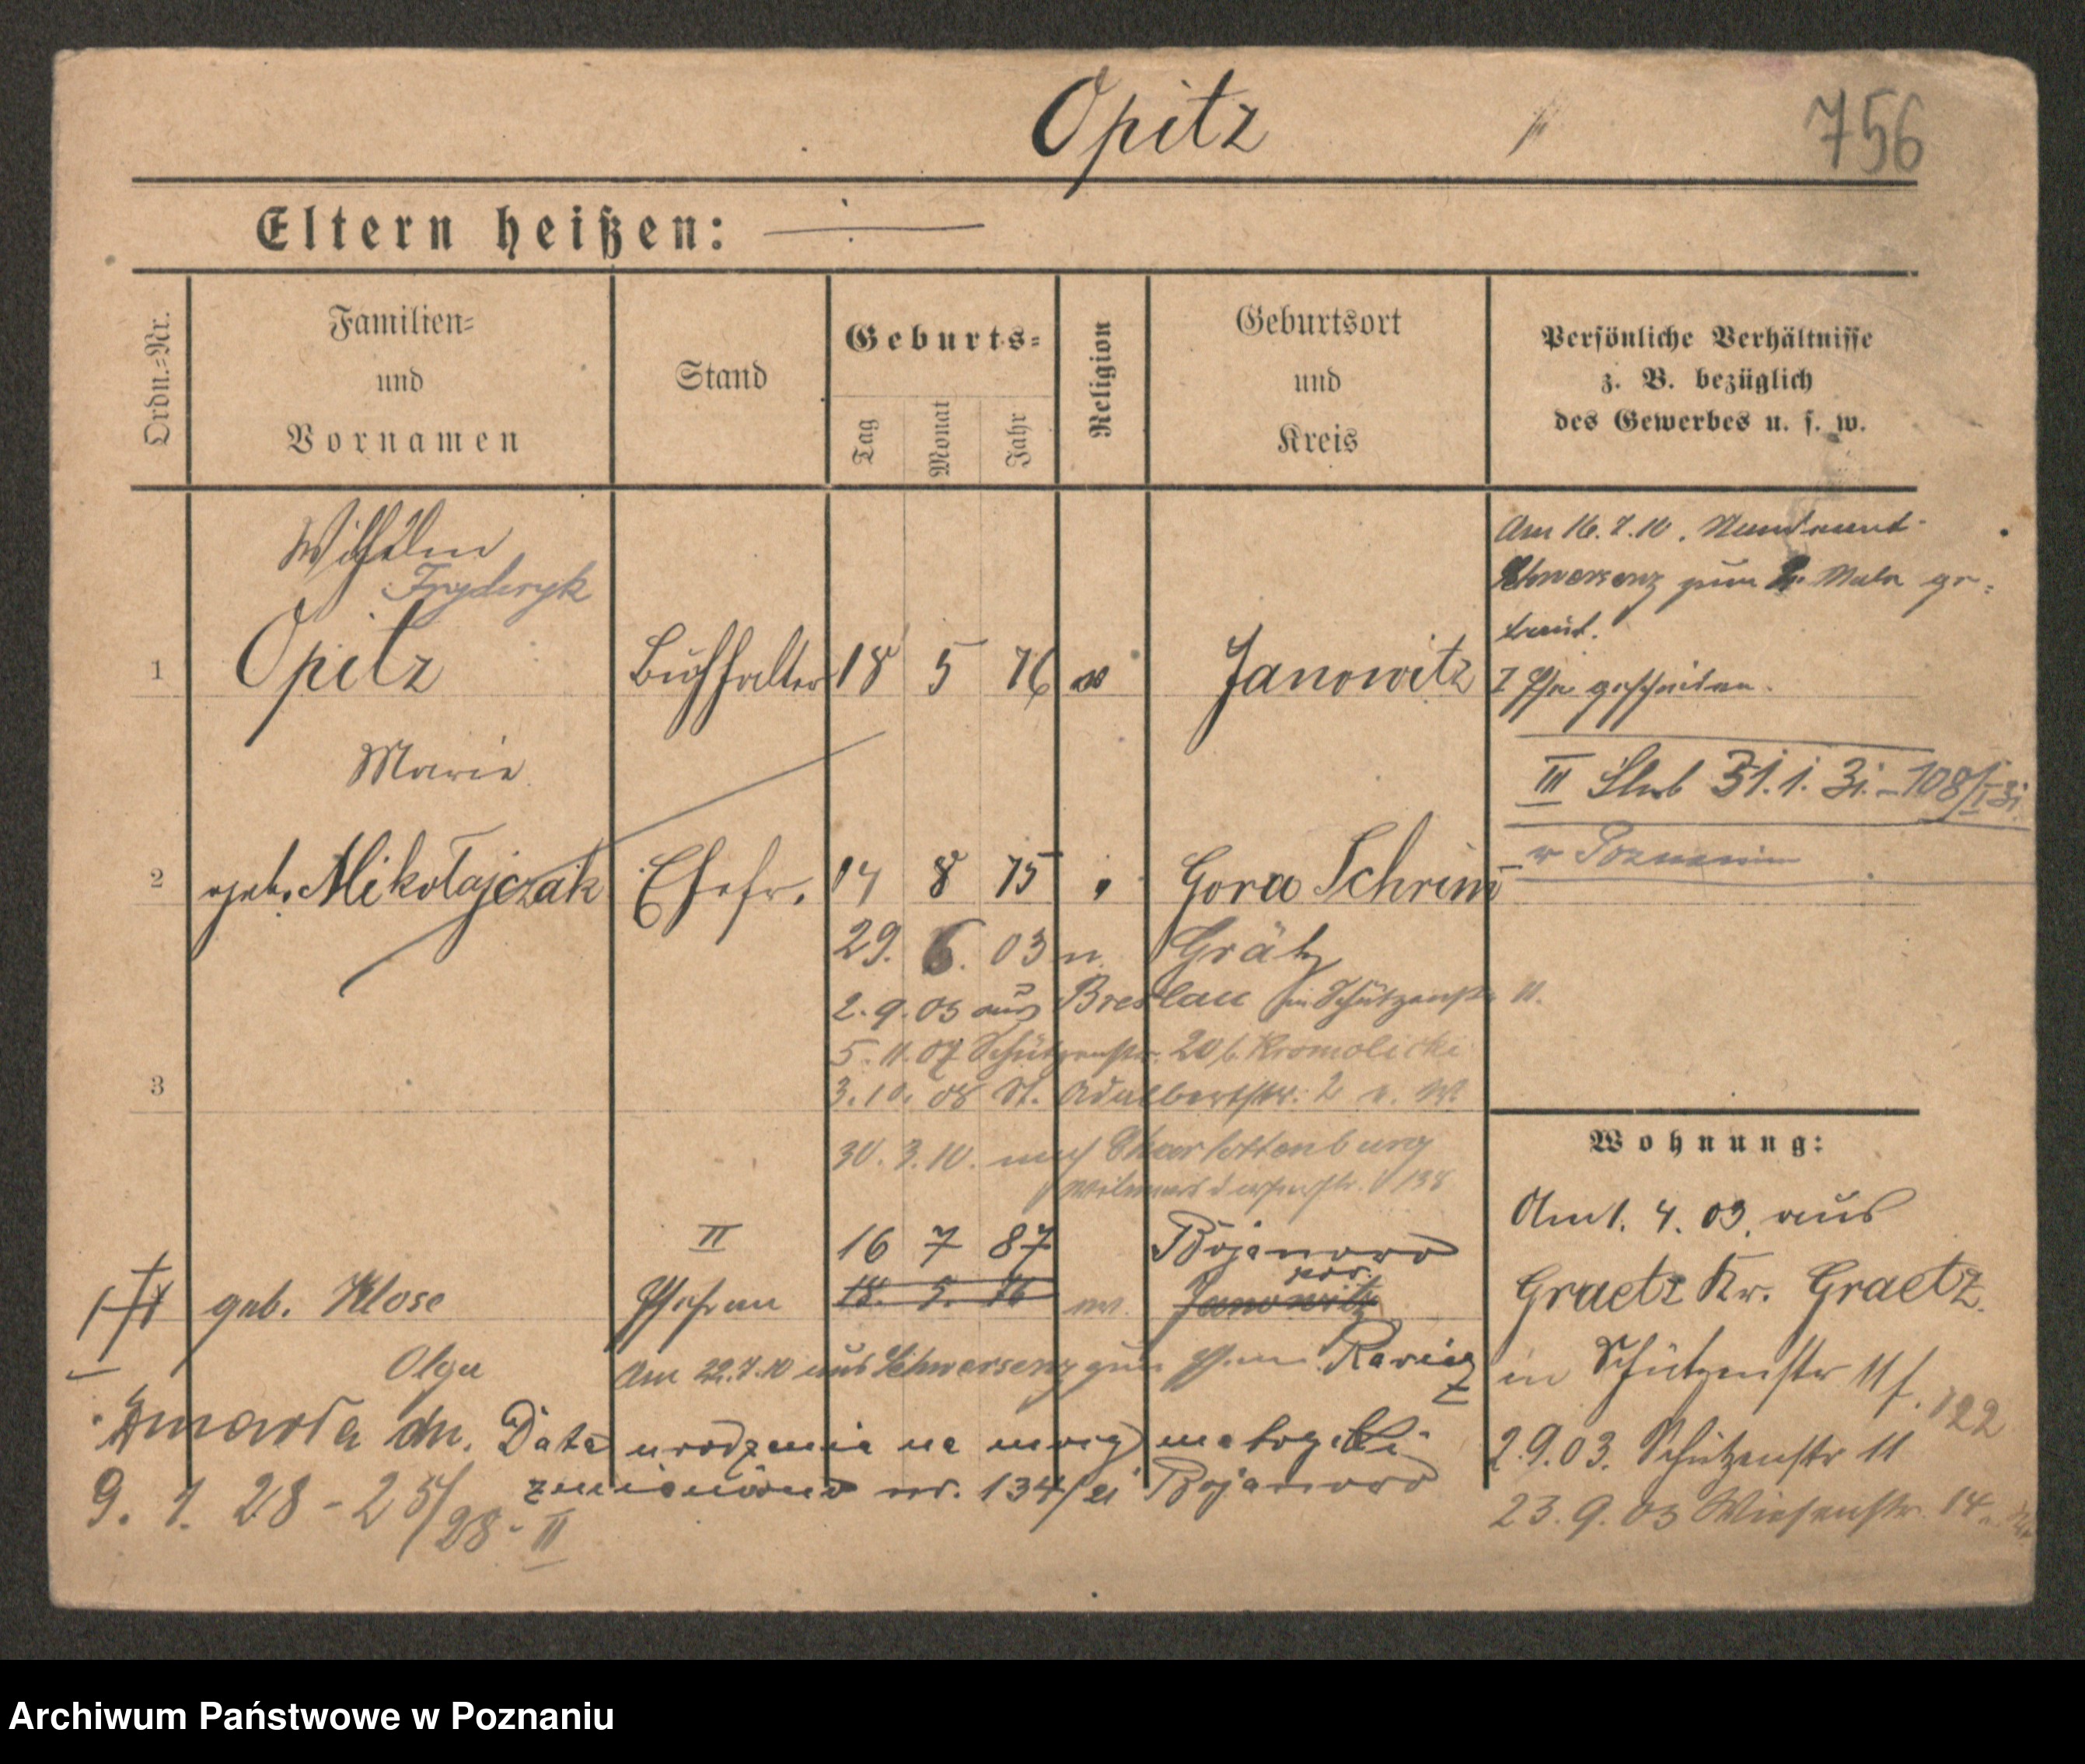 Opitz
756
Eltern heißen: —
Ordn.=Nr.
Familien=
und
Vornamen
Stand
Geburts=
Tag
Monat
Jahr
Religion
Geburtsort
und
Kreis
Persönliche Verhältnisse
z. B. bezüglich
des Gewerbes u. s. w.
Wilhelm
Fryderyk
1 Opitz Buchhalter 18 5 76 Janowitz
Am 16.7.10. Standesamt
Schwersenz zum 2. Male ge=
traut.
I Ehe geschieden.
III Ślub 31.1.31. - 108/I 31
w Poznaniu
Marie
2 geb. Mikołajczak Ehefr. 14 8 75 Gora Schrim
29. 6. 03 n. Grätz
2.9.03 aus Breslau in Schützenstr. 11.
5.11.07 Schützenstr. 20 b. Kromolicki
3
3.10.08 St. Adalbertstr. 2
30.3.10. nach Charlottenburg
Wilmersdorferstr. 138
II 16 7 87 Bojanowo
geb. Klose Ehefrau 18. 5. 76 Janowitz
pow.
Olga Am 22.7.10 aus Schwersenz zum Rawicz
Zmarła dn. Data urodzenia na mocy metryki
9. 1. 28 - 25/28 - II
zmieniono nr. 134/ Bojanowo
Wohnung:
Am 1. 4. 03. aus
Graetz Kr. Graetz.
in Schützenstr 11
122
2.9.03. Schützenstr 11
23.9.03 Wiesenstr. 14
Archiwum Państwowe w Poznaniu